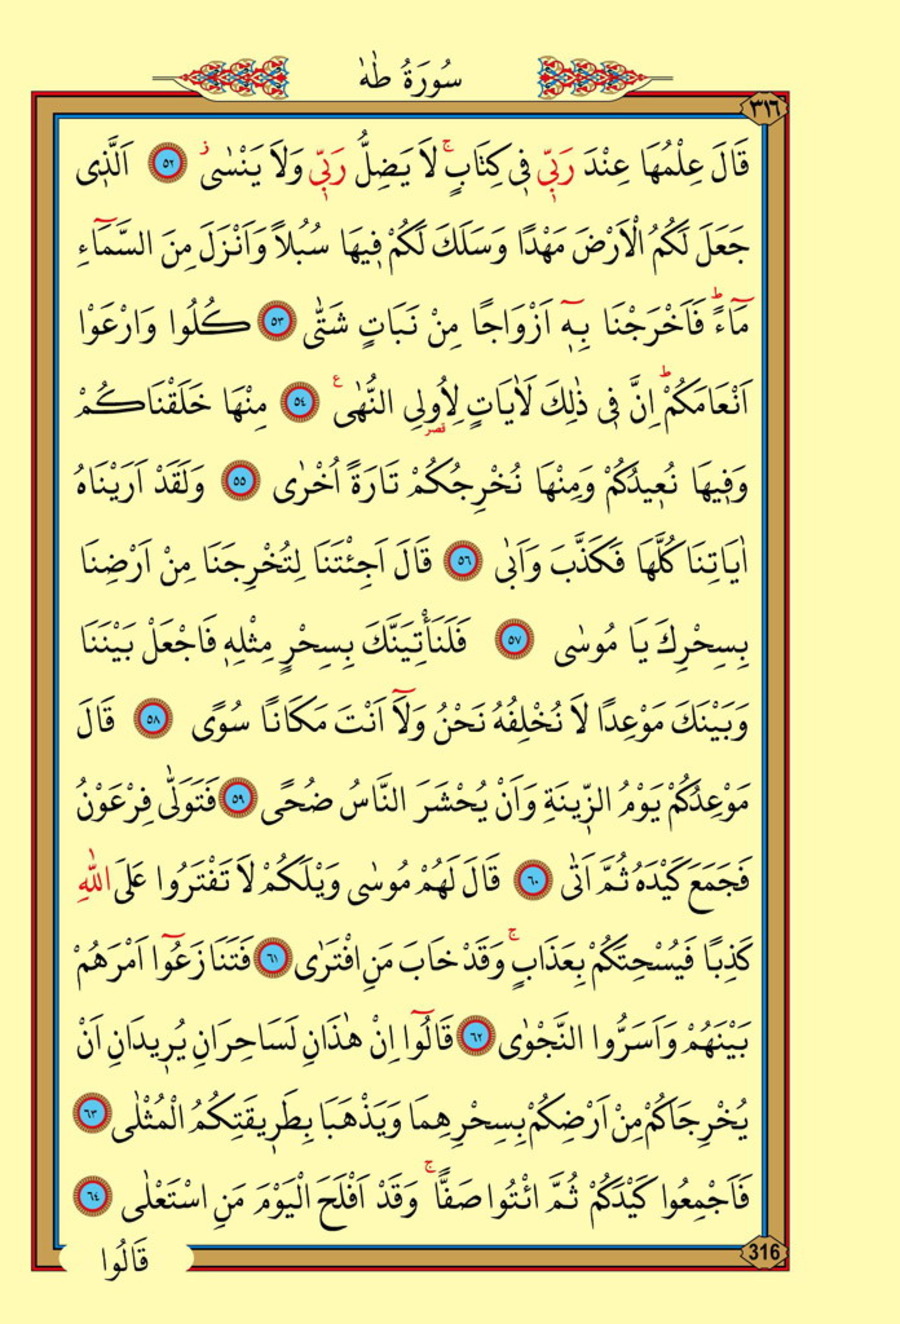 سُورَةُ طٰهٰ
٣١٦
قَالَ عِلْمُهَا عِنْدَ رَبّ۪ي ف۪ي كِتَابٍۚ لَا يَضِلُّ رَبّ۪ي وَلَا يَنْسٰىۘ ﴿٥٢﴾ اَلَّذ۪ي
جَعَلَ لَكُمُ الْاَرْضَ مَهْدًا وَسَلَكَ لَكُمْ ف۪يهَا سُبُلًا وَاَنْزَلَ مِنَ السَّمَٓاءِ
مَٓاءًۜ فَاَخْرَجْنَا بِه۪ٓ اَزْوَاجًا مِنْ نَبَاتٍ شَتّٰى ﴿٥٣﴾ كُلُوا وَارْعَوْا
اَنْعَامَكُمْۜ اِنَّ ف۪ي ذٰلِكَ لَاٰيَاتٍ لِاُولِي النُّهٰى۟ ﴿٥٤﴾ مِنْهَا خَلَقْنَاكُمْ
قصر
وَف۪يهَا نُع۪يدُكُمْ وَمِنْهَا نُخْرِجُكُمْ تَارَةً اُخْرٰى ﴿٥٥﴾ وَلَقَدْ اَرَيْنَاهُ
اٰيَاتِنَا كُلَّهَا فَكَذَّبَ وَاَبٰى ﴿٥٦﴾ قَالَ اَجِئْتَنَا لِتُخْرِجَنَا مِنْ اَرْضِنَا
بِسِحْرِكَ يَا مُوسٰى ﴿٥٧﴾ فَلَنَأْتِيَنَّكَ بِسِحْرٍ مِثْلِه۪ فَاجْعَلْ بَيْنَنَا
وَبَيْنَكَ مَوْعِدًا لَا نُخْلِفُهُ نَحْنُ وَلَٓا اَنْتَ مَكَانًا سُوًى ﴿٥٨﴾ قَالَ
مَوْعِدُكُمْ يَوْمُ الزّ۪ينَةِ وَاَنْ يُحْشَرَ النَّاسُ ضُحًى ﴿٥٩﴾ فَتَوَلّٰى فِرْعَوْنُ
فَجَمَعَ كَيْدَهُ ثُمَّ اَتٰى ﴿٦٠﴾ قَالَ لَهُمْ مُوسٰى وَيْلَكُمْ لَا تَفْتَرُوا عَلَى اللّٰهِ
كَذِبًا فَيُسْحِتَكُمْ بِعَذَابٍۚ وَقَدْ خَابَ مَنِ افْتَرٰى ﴿٦١﴾ فَتَنَازَعُٓوا اَمْرَهُمْ
بَيْنَهُمْ وَاَسَرُّوا النَّجْوٰى ﴿٦٢﴾ قَالُٓوا اِنْ هٰذَانِ لَسَاحِرَانِ يُر۪يدَانِ اَنْ
يُخْرِجَاكُمْ مِنْ اَرْضِكُمْ بِسِحْرِهِمَا وَيَذْهَبَا بِطَر۪يقَتِكُمُ الْمُثْلٰى ﴿٦٣﴾
فَاَجْمِعُوا كَيْدَكُمْ ثُمَّ ائْتُوا صَفًّاۚ وَقَدْ اَفْلَحَ الْيَوْمَ مَنِ اسْتَعْلٰى ﴿٦٤﴾
316
قَالُوا